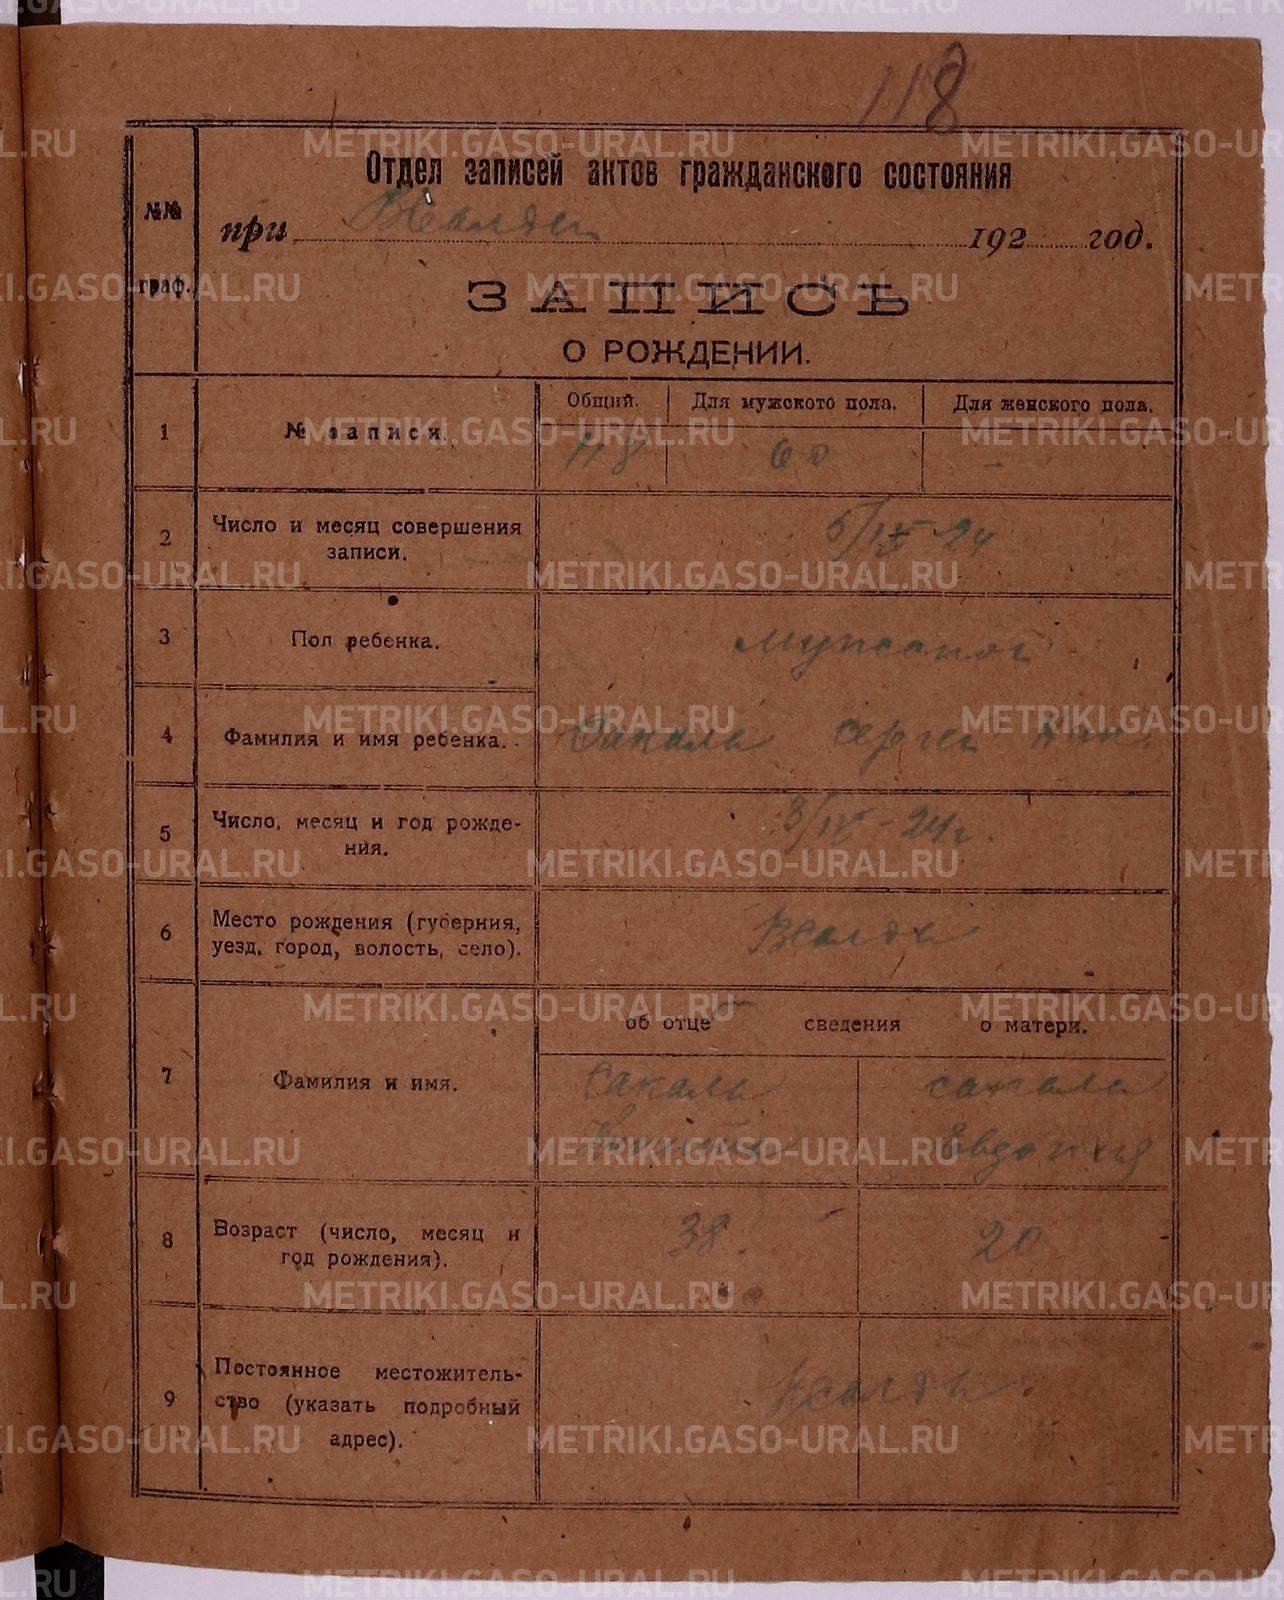 118
Отдел записей актов гражданского состояния
№№ граф.
при 192 год.
ЗАПИСЬ
О РОЖДЕНИИ.
Общий. Для мужского пола. Для женского пола.
1 № записи. 118 60 -
2 Число и месяц совершения
записи. 5/IV-24
3 Пол ребенка. мужской
4 Фамилия и имя ребенка. Сакаль Сергей Ник.
5 Число, месяц и год рожде-
ния. 3/IV-24г.
6 Место рождения (губерния,
уезд, город, волость, село).
об отце сведения о матери.
7 Фамилия и имя. Сакаль сакаль
Евдокия
8 Возраст (число, месяц и
год рождения). 38. 20
9 Постоянное местожитель-
ство (указать подробный
адрес).
METRIKI.GASO-URAL.RU